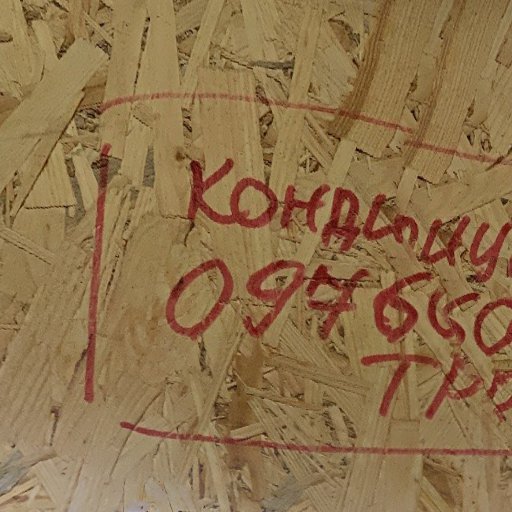 КОНДИЦИ
097660
ТРО